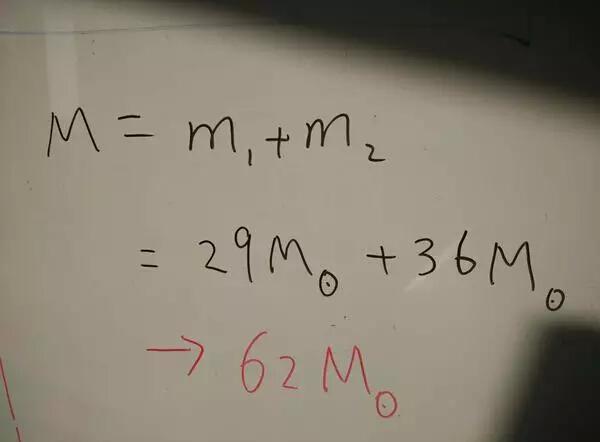 M = m₁ + m₂
= 29M⊙ + 36M⊙
→ 62M⊙